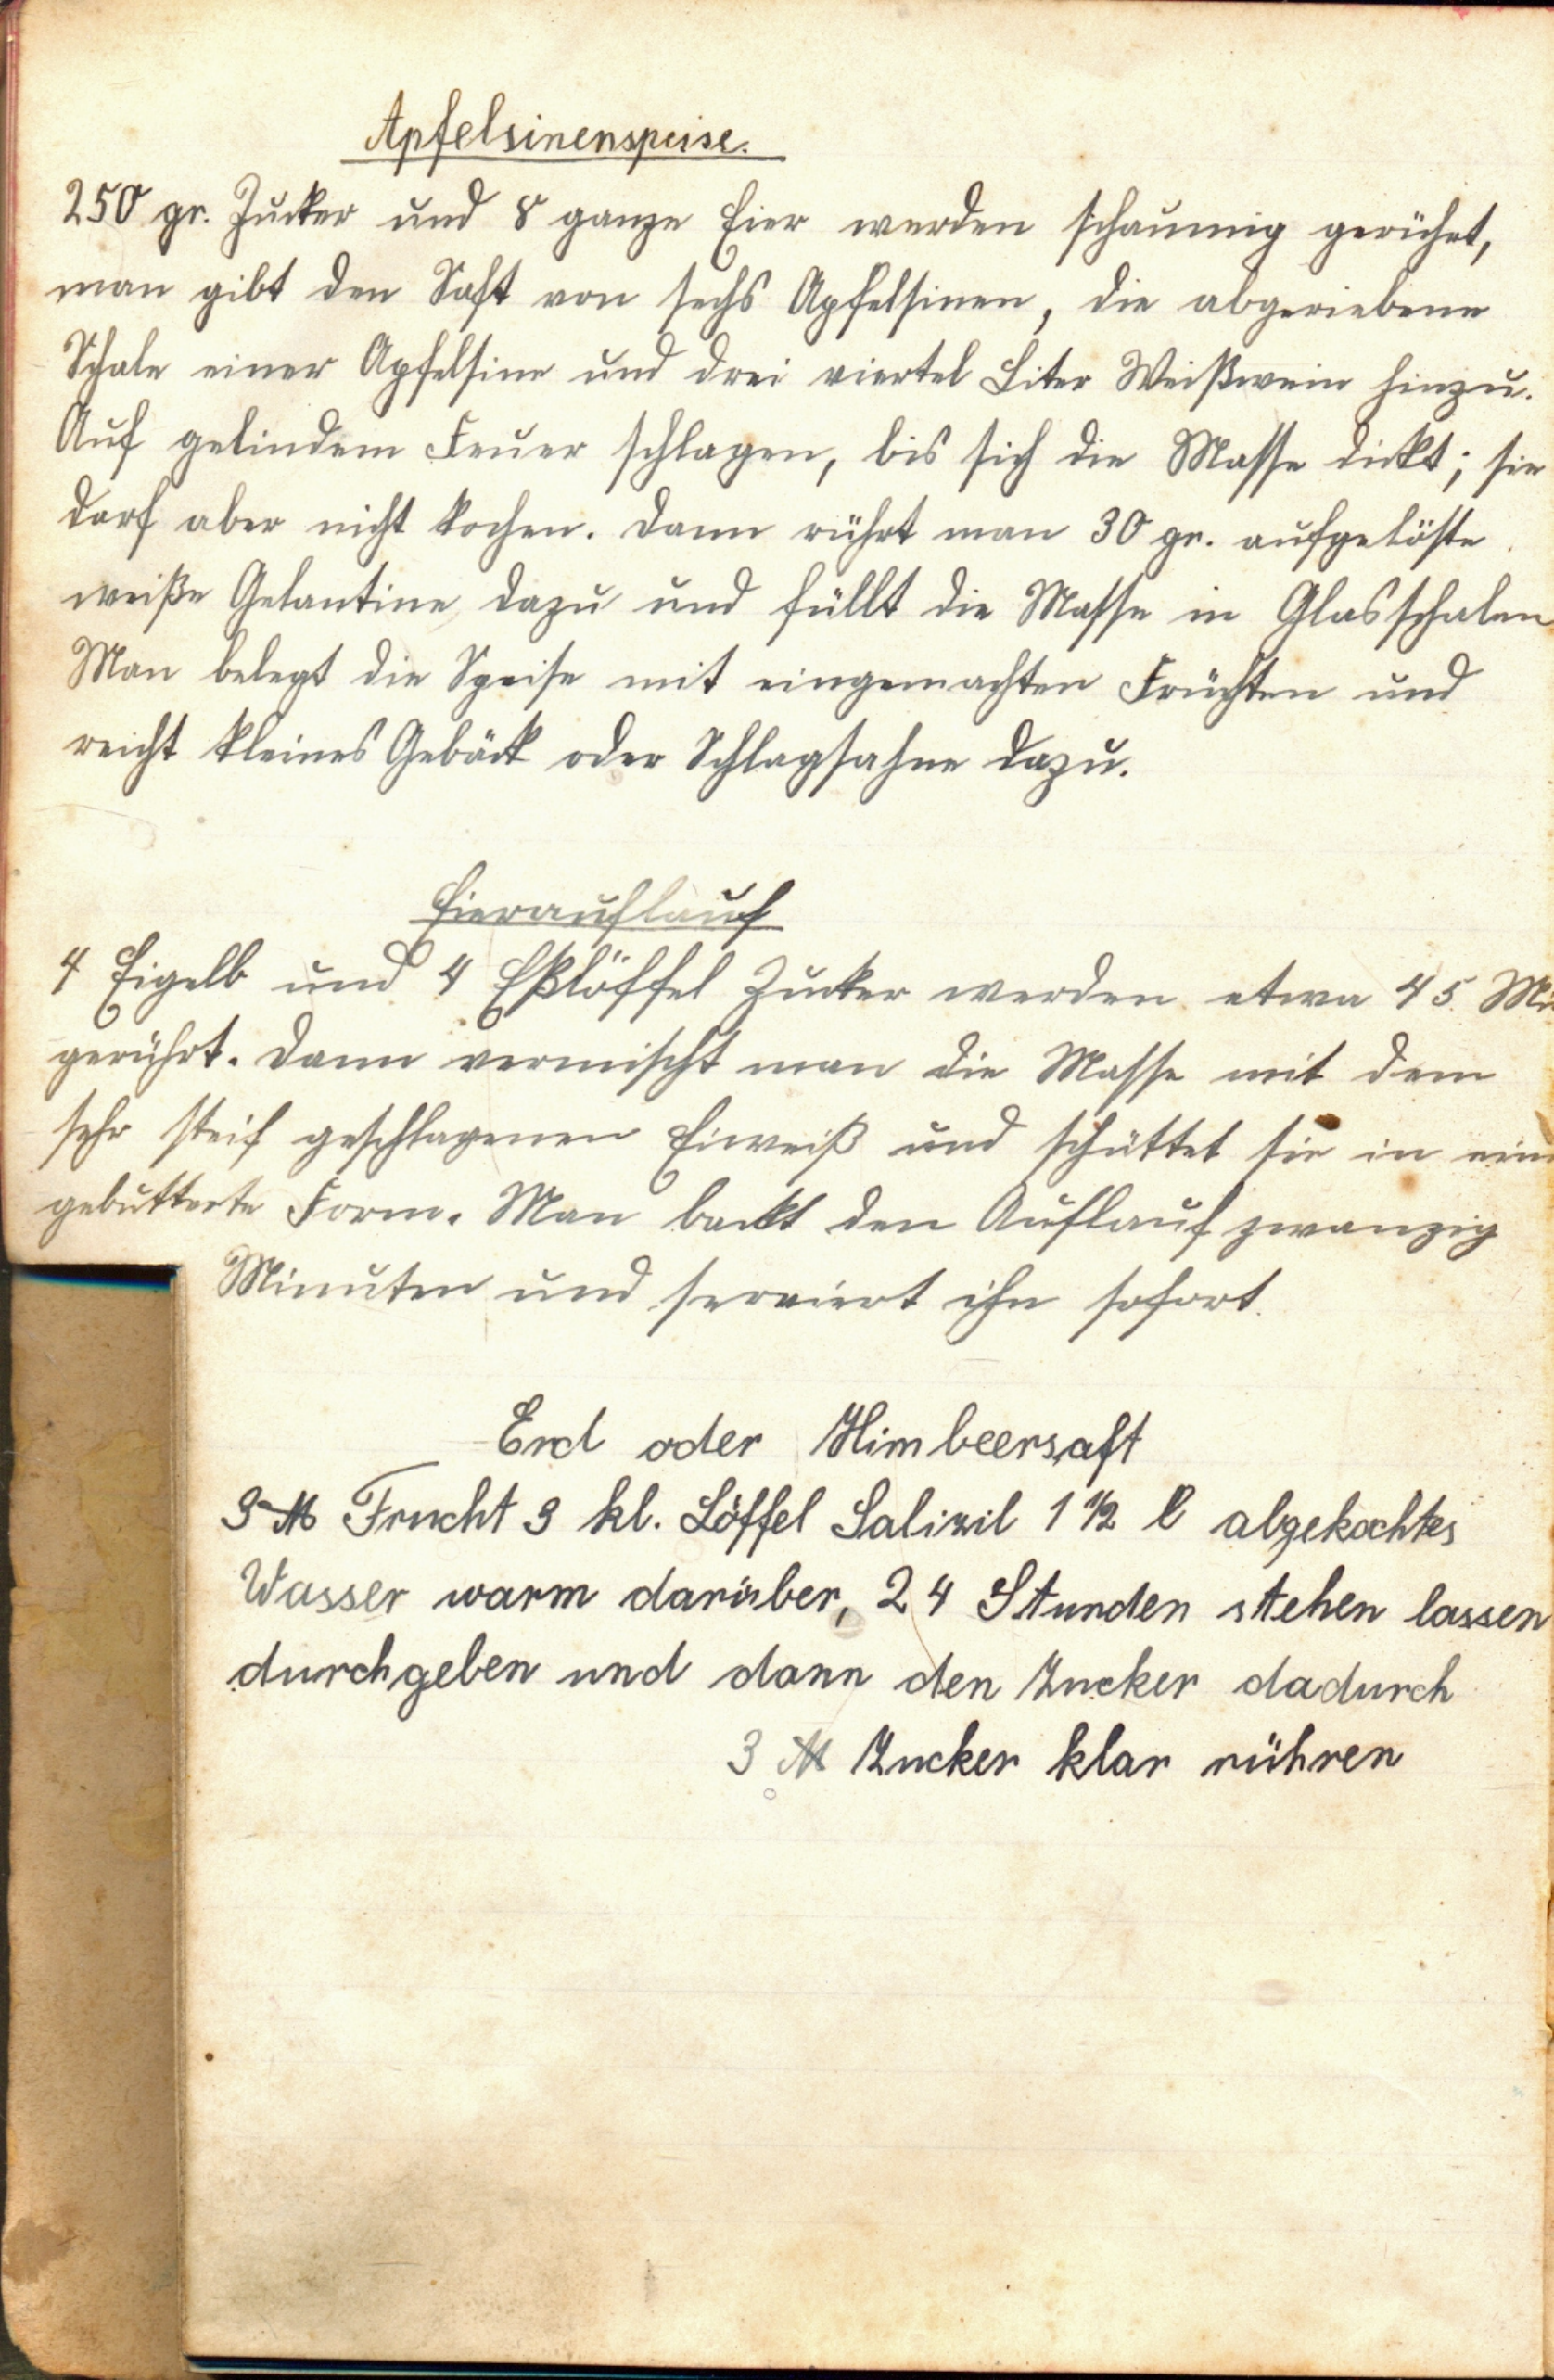 Apfelsinenspeise.
250 gr. Zucker und 8 ganze Eier werden schaumig gerührt,
man gibt den Saft von sechs Apfelsinen, die abgeriebene
Schale einer Apfelsine und drei viertel Liter Weißwein hinzu.
Auf gelindem Feuer schlagen, bis sich die Masse dickt; sie
darf aber nicht kochen. Dann rührt man 30 gr. aufgelöste
weiße Gelantine dazu und füllt die Masse in Glasschalen
Man belegt die Speise mit eingemachten Früchten und
reicht kleines Gebäck oder Schlagsahne dazu.
Eierauflauf
4 Eigelb und 4 Eßlöffel Zucker werden etwa 45 Mi
gerührt. Dann vermischt man die Masse mit dem
sehr steif geschlagenen Eiweiß und schüttet sie in eine
gebutterte Form. Man backt den Auflauf zwanzig
Minuten und serviert ihn sofort.
Erd oder Himbeersaft
3 ℔ Frucht 3 kl. Löffel Salizil 1 1/2 l abgekochtes
Wasser warm darüber, 24 Stunden stehen lassen
durchgeben und dann den Zucker dadurch
3 ℔ Zucker klar rühren